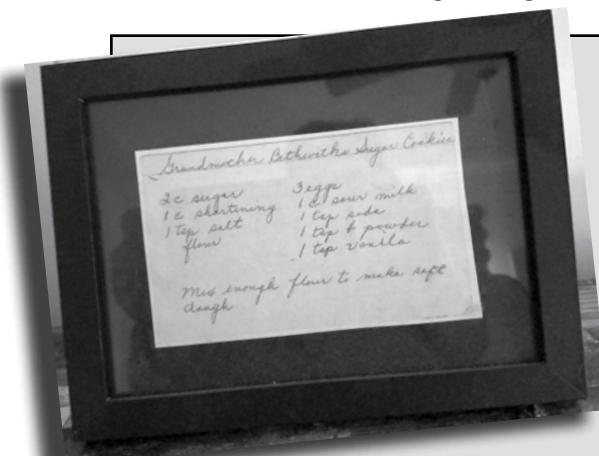 Grandmother Bethwiths Sugar Cookies
2 c sugar
1 c shortening
1 tsp salt
flour
3 eggs
1 c. sour milk
1 tsp soda
1 tsp b powder
1 tsp vanila
Mix enough flour to make soft
dough